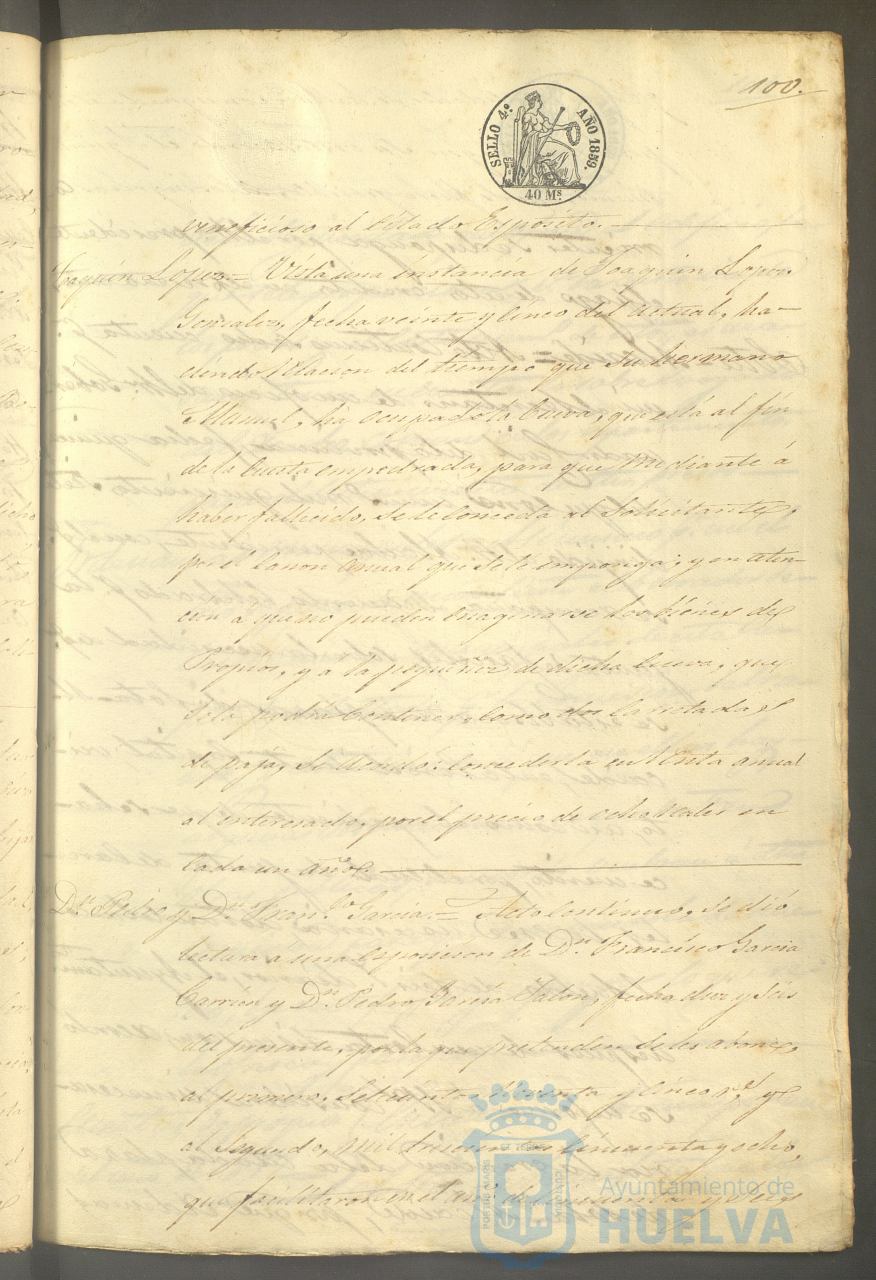 100.
SELLO 4º AÑO 1859.
40 Mˢ
veneficioso al citado Esposito.
Joaquin Lopez = Vista una instancia de Joaquin Lopez
Gonzalez, fecha veinte y cinco del actual, ha-
ciendo relacion del tiempo que su hermano
Manuel, ha ocupado la Cueva, que está al fin
de la Cuesta empedrada, para que mediante á
haber fallecido, se le conceda al solicitante,
por el canon anual que se le imponga; y en aten-
cion á que no pueden enagenarse los bienes de
Propios, y a la pequeñez de dicha cueva, que
solo podrá contener, como dos carretadas
de paja, se acordó: concederla en renta anual
al interesado, por el precio de ocho reales en
cada un año.
Dⁿ Pedro y Dⁿ Franᶜᵒ Garcia = Acto continuo, se dió
lectura á una esposicion de Dⁿ Francisco Garcia
Carrion y Dⁿ Pedro Garcia Jalon, fecha diez y seis
del presente, por la que pretenden se les abone,
al primero, setecientos y cinco rˢ y
al segundo, mil cincuenta y ocho,
que facilitaron en el año de
Ayuntamiento de
HUELVA